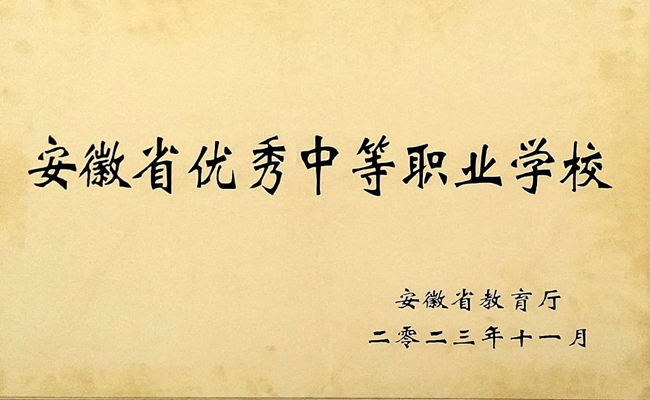 安徽省优秀中等职业学校
安徽省教育厅
二零二三年十一月